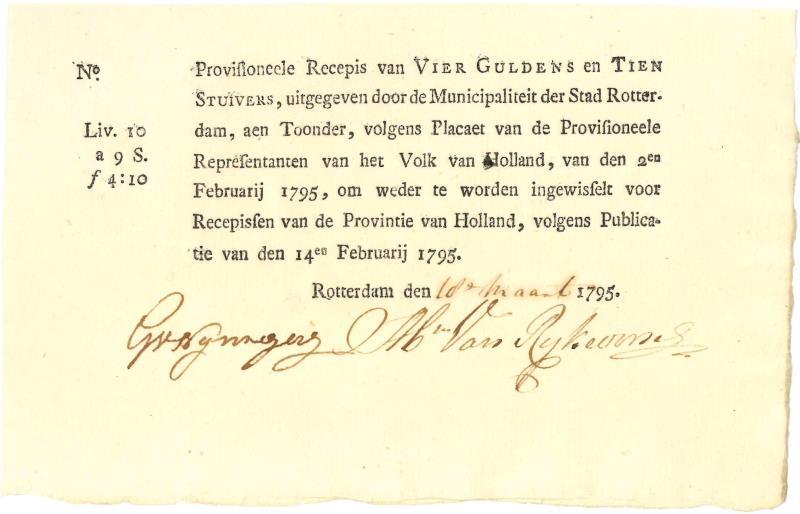 No.
Provisioneele Recepis van VIER GULDENS en TIEN
STUIVERS, uitgegeven door de Municipaliteit der Stad Rotter-
Liv. 10
dam, aen Toonder, volgens Placaet van de Provisioneele
a 9 S.
Representanten van het Volk van Holland, van den 2en
ƒ 4:10
Februarij 1795, om weder te worden ingewisselt voor
Recepissen van de Provintie van Holland, volgens Publica-
tie van den 14en Februarij 1795.
Rotterdam den maart 1795.
Van